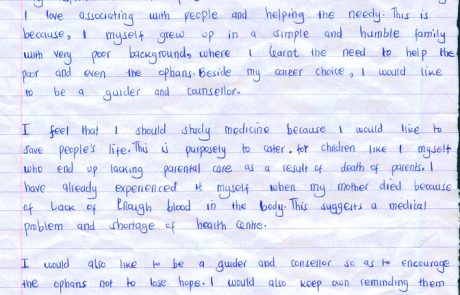 I love associating with people and helping the needy. This is
because, I myself grew up in a simple and humble family
with very poor background, where I learnt the need to help the
poor and even the ophans. Beside my career choice, I would like
to be a guider and counsellor.
I feel that I should study medicine because I would like to
save people's life. This is purposely to cater. for children like I myself
who end up lacking parental care as a result of death of parents. I
have already experienced it myself when my mother died because
of Lack of Enough blood in the body. This suggests a medical
problem and shortage of health centre.
I would also like to be a guider and consellor so as to encourage
the ophans not to lose hope. I would also keep own reminding them